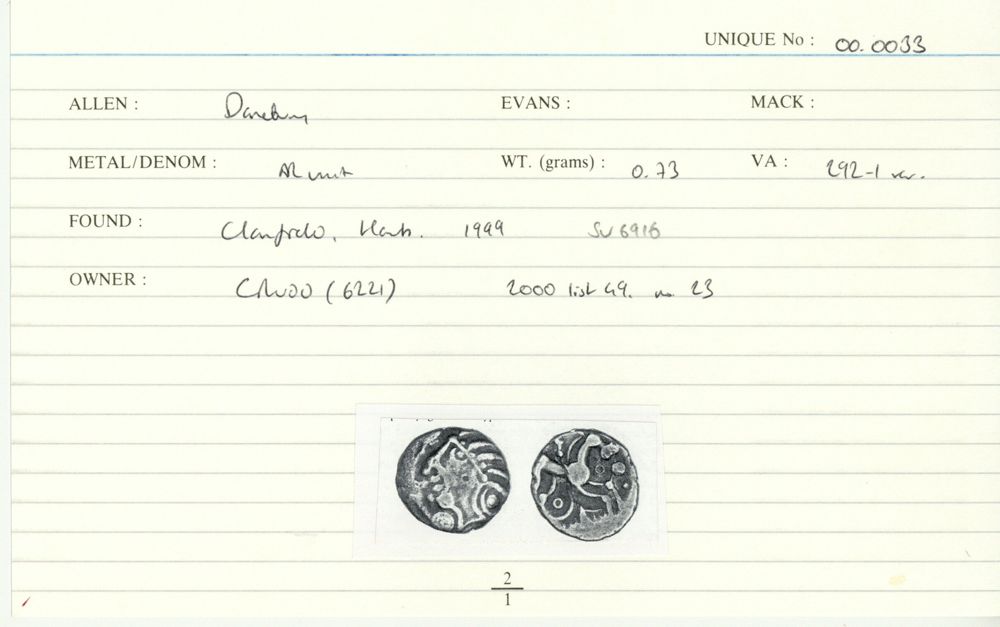 UNIQUE No : 00.0033
ALLEN : Danebury EVANS : MACK :
METAL/DENOM : AR unit WT. (grams) : 0.73 VA : 292-1 var.
FOUND : Clanfield, Hants. 1999 SU 6916
OWNER : CRUDO (6221) 2000 list 49. no 23
2
1